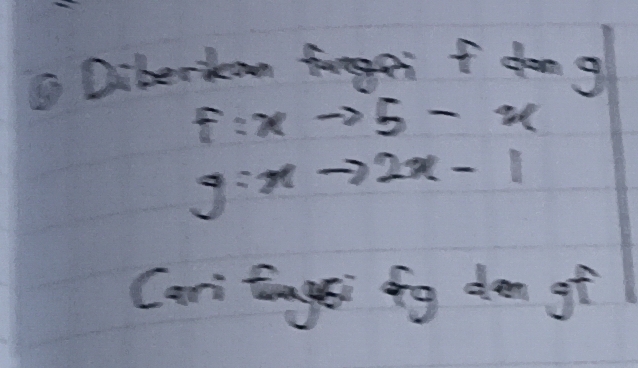 Diberikan fungsi f dan g
f : x → 5 - x
g : x → 2x - 1
Cari fungsi fg dan gf